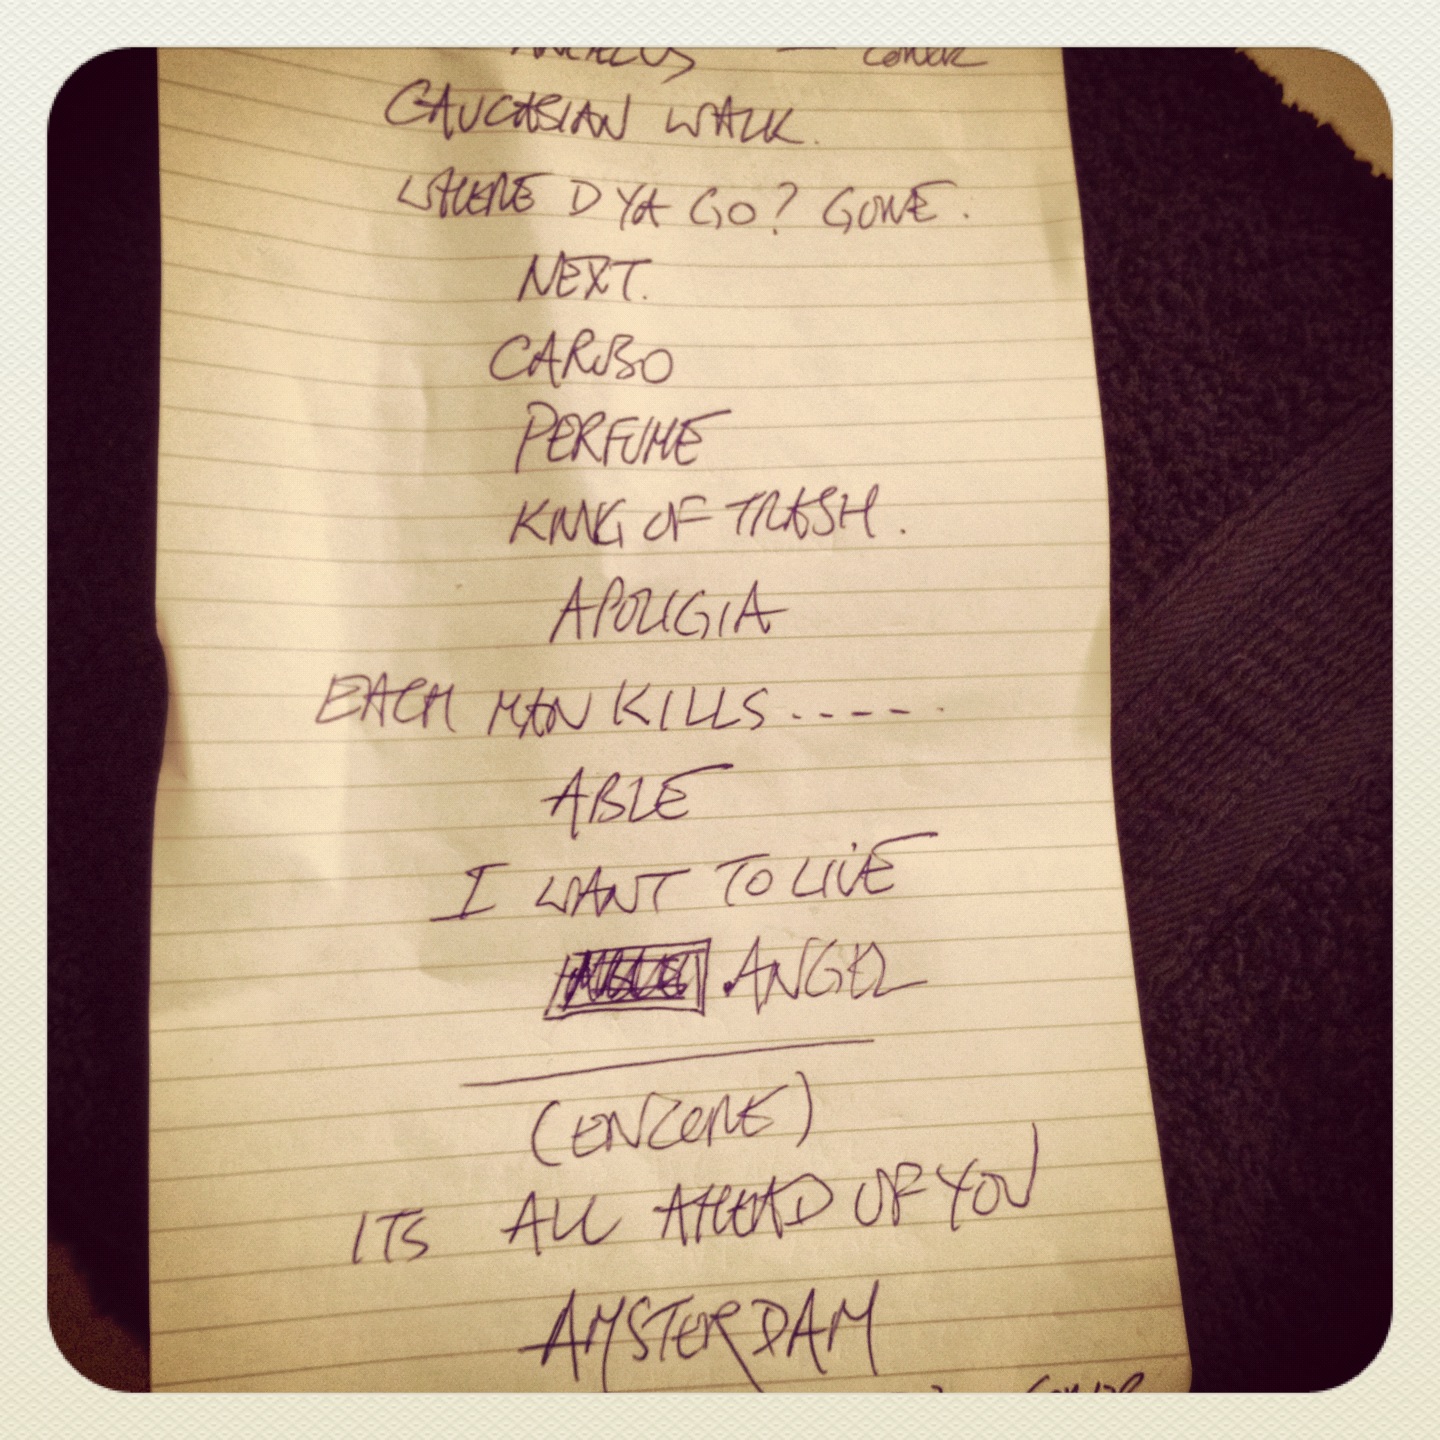 CAUCASIAN WALK.
WHERE D YA GO? GONE.
NEXT.
CARIBO
PERFUME
KING OF TRASH.
APOLIGIA
EACH MAN KILLS.----.
ABLE
I WANT TO LIVE
ANGEL
(ENCORE)
ITS ALL AHEAD OF YOU
AMSTERDAM